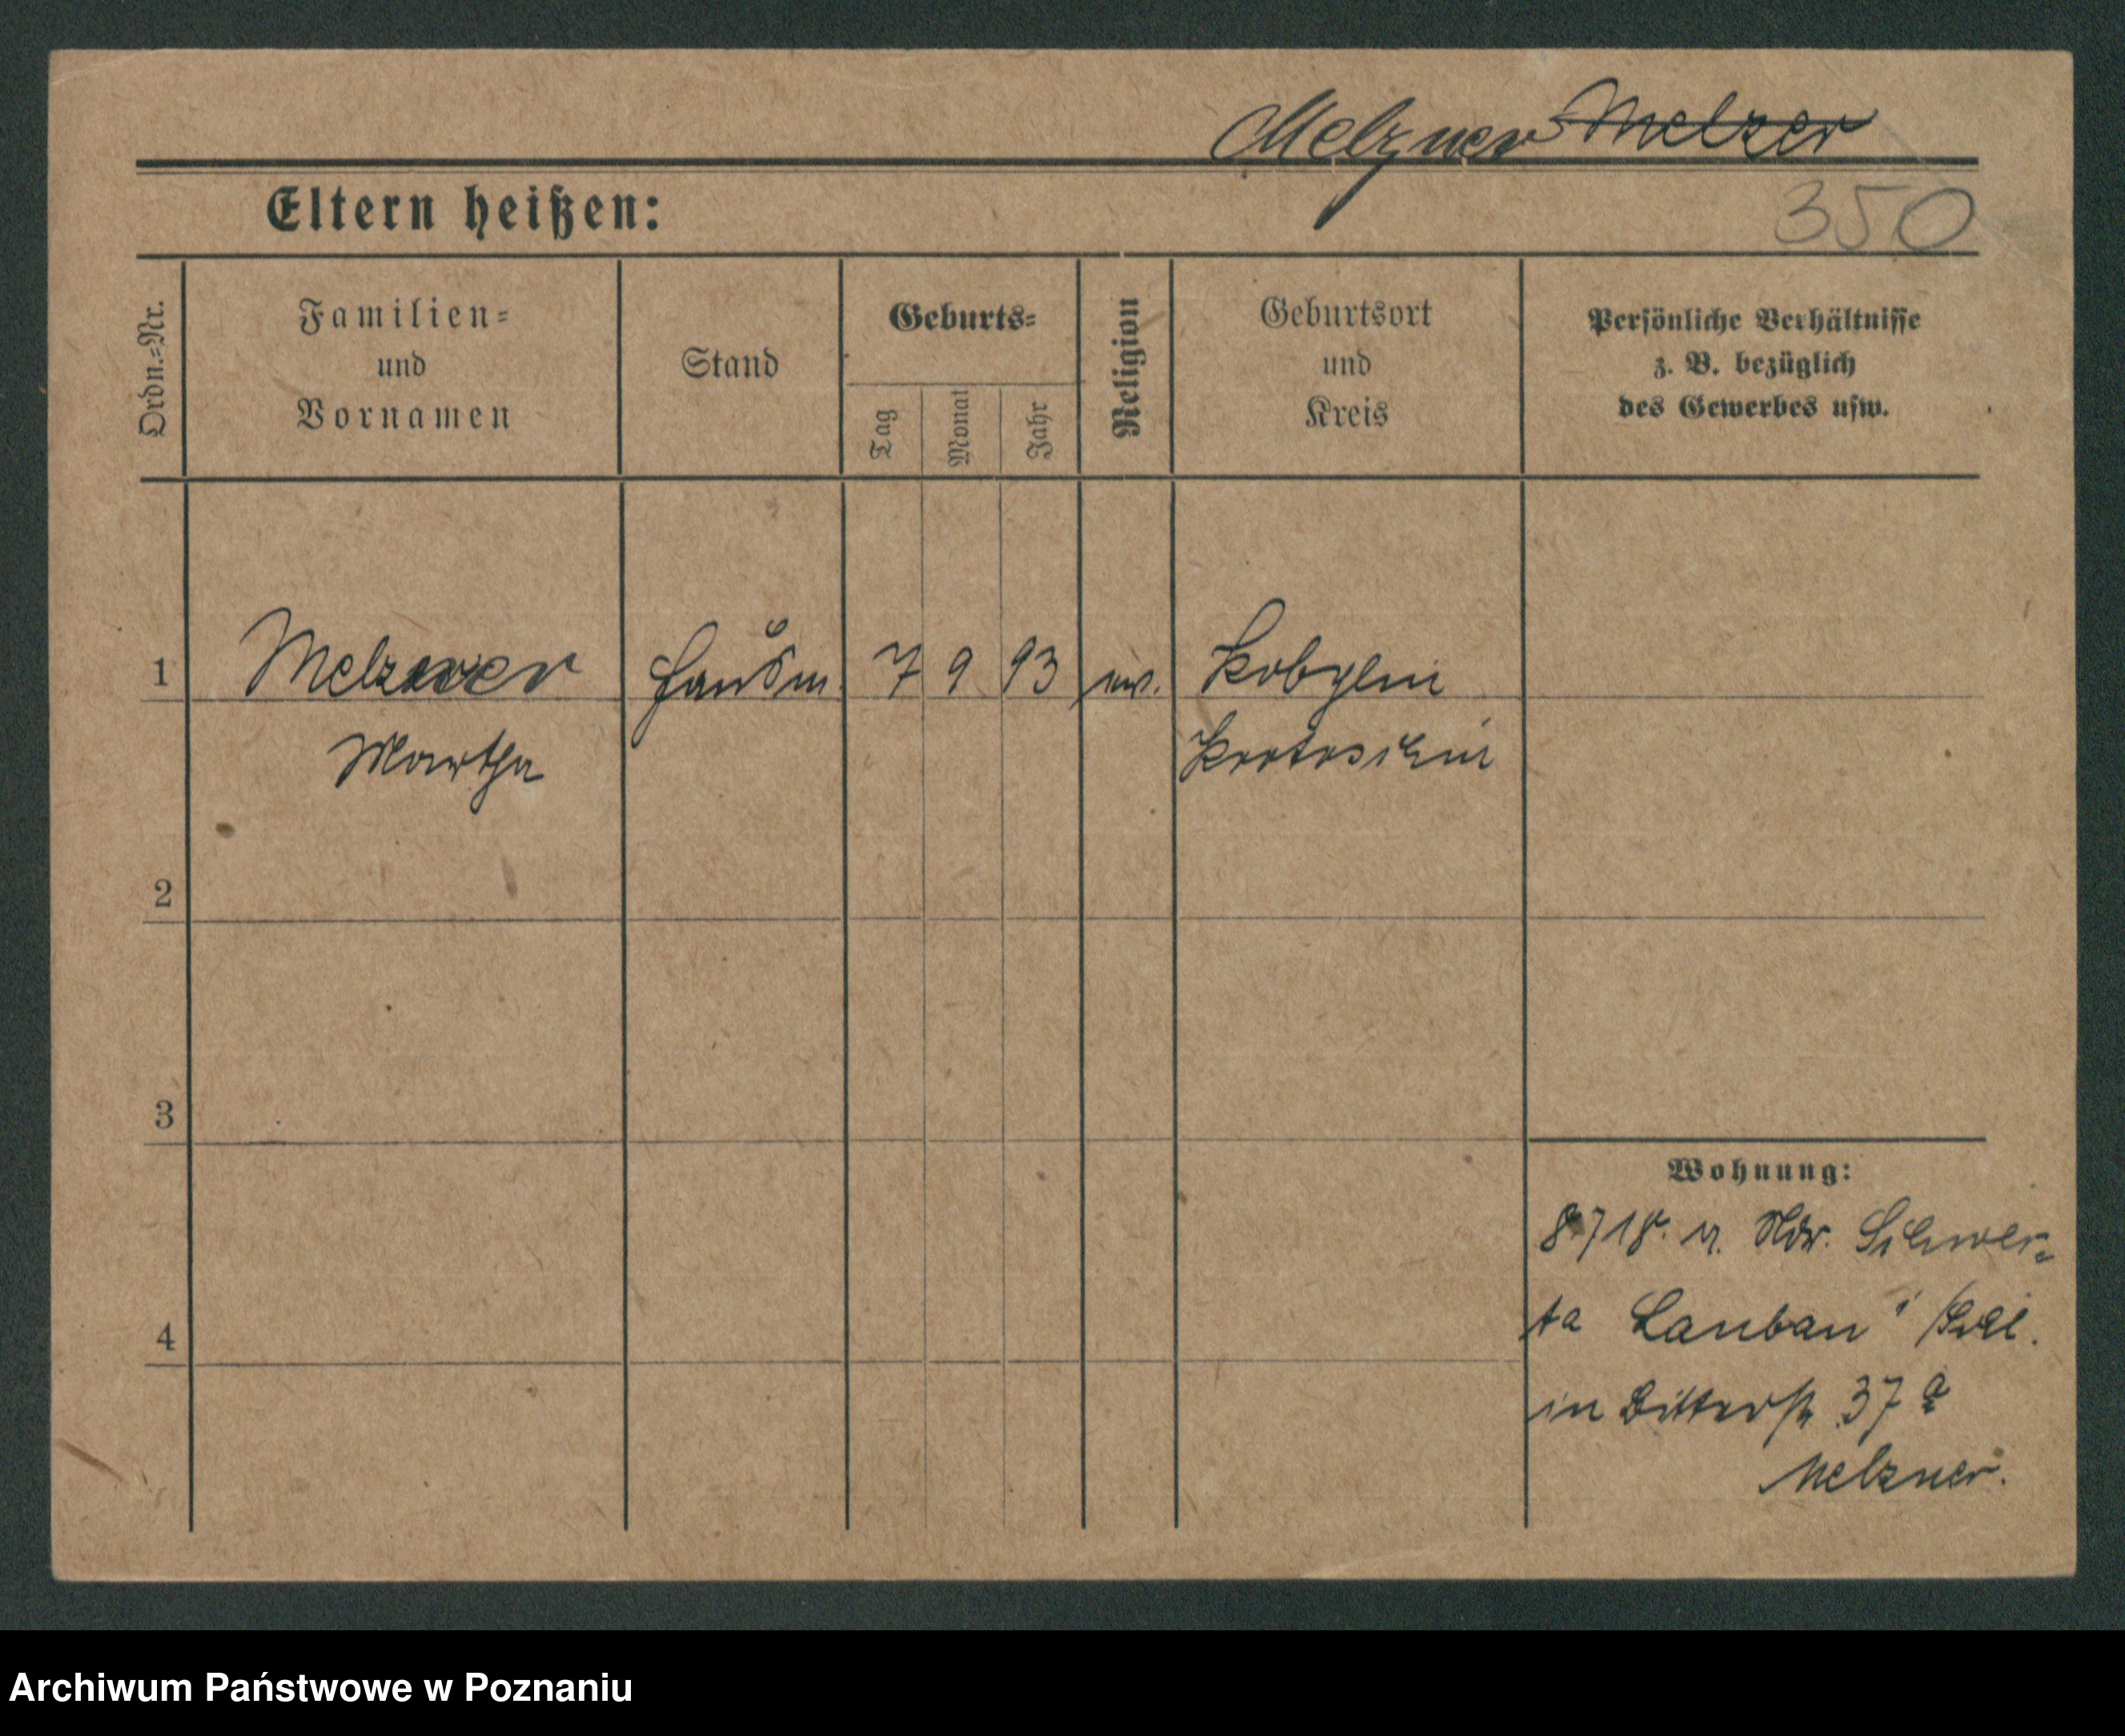 Melzner Melzer
Eltern heißen:
350
Ordn.=Nr.
Familien=
und
Vornamen
Stand
Geburts=
Tag
Monat
Jahr
Religion
Geburtsort
und
Kreis
Persönliche Verhältnisse
z. B. bezüglich
des Gewerbes usw.
1 Melzner 7 9 93 Kobylin
Martha Krotoschin
2
3
4
Wohnung:
8718. v. Ndr. Schwer=
ta Lauban i/Schl.
in Bitterstr 37a
Melzner.
Archiwum Państwowe w Poznaniu